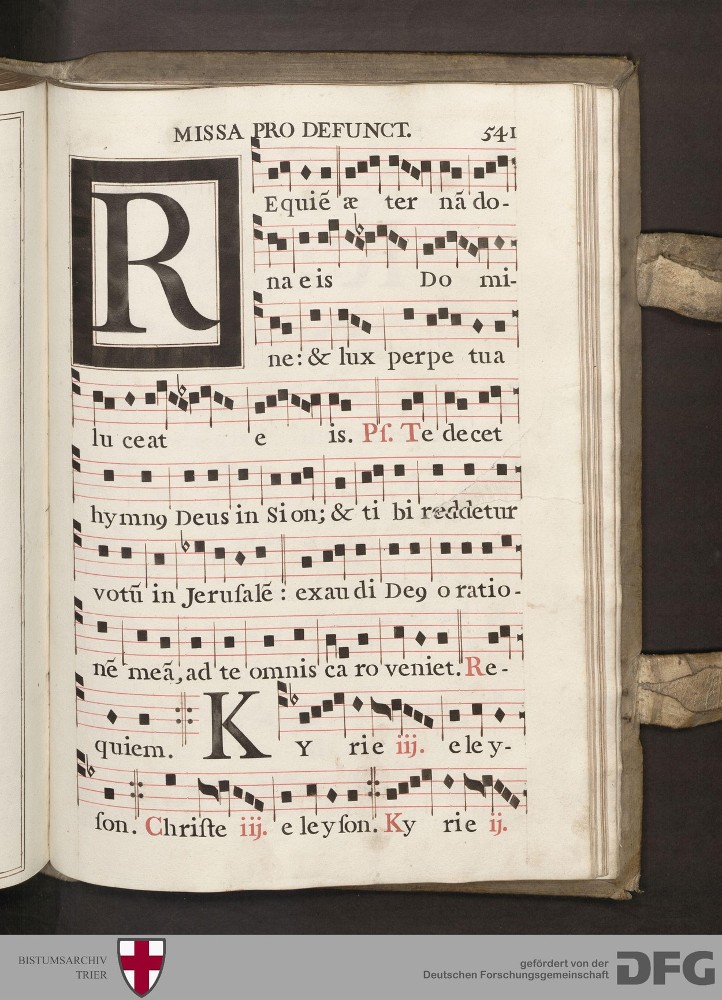 MISSA PRO DEFUNCT. 541
R Equiē æ ter nā do-
na e is Do mi-
ne: & lux perpe tua
lu ceat e is. Pſ. Te decet
hymn9 Deus in Sion; & ti bi reddetur
votū in Jeruſalē : exaudi De9 o ratio-
nē meā, ad te omnis ca ro veniet. Re-
quiem. K Y rie iij. eley-
ſon. Chriſte iij. eleyſon. Ky rie ij.
BISTUMSARCHIV
TRIER
gefördert von der
Deutschen Forschungsgemeinschaft
DFG